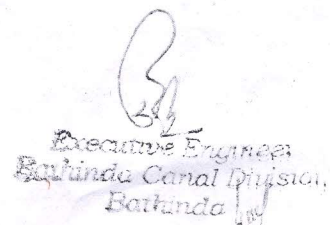 Executive Engineer
Bathinda Canal Division,
Bathinda